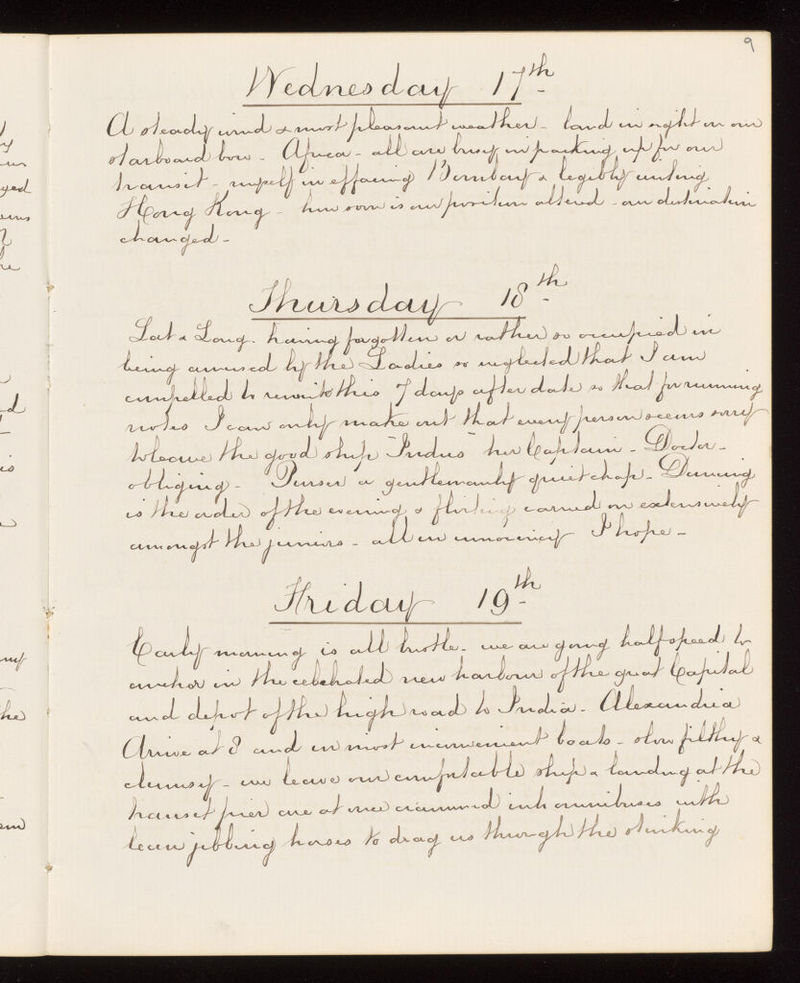 9
Wednesday 17th
A steady wind & most pleasant weather - land in sight on our
starboard bow - Africa - all are busy in packing up for our
transit - myself in effacing Bombay & legibly writing
Hong Kong - how soon is our position altered - our destination
changed -
Thursday 18th
Lat & Long. having forgotten or rather so occupied in
being amused by the Ladies so neglected that I am
compelled to rewrite this 7 days after date so that from running
notes I can only make out that every person seems sorry
to leave the good ship "Indus" her Captain - Doctor -
obliging - Purser a gentlemanly quiet chap - Dancing
is the order of the evening & flirting carried on extensively
amongst the juniors - all in innocency I hope -
Friday 19th
Early morning is all bustle - we are going half speed to
anchor in the celebrated new harbour of the great Capital
and depot of the high road to India - Alexandria
Arrive at 8 and in most inconvenient boats - slow filthy &
clumsy - we leave our comfortable ship & landing at the
transit pier are at once crammed into omnibuses with
lean jibbing horses to drag us through the stinking